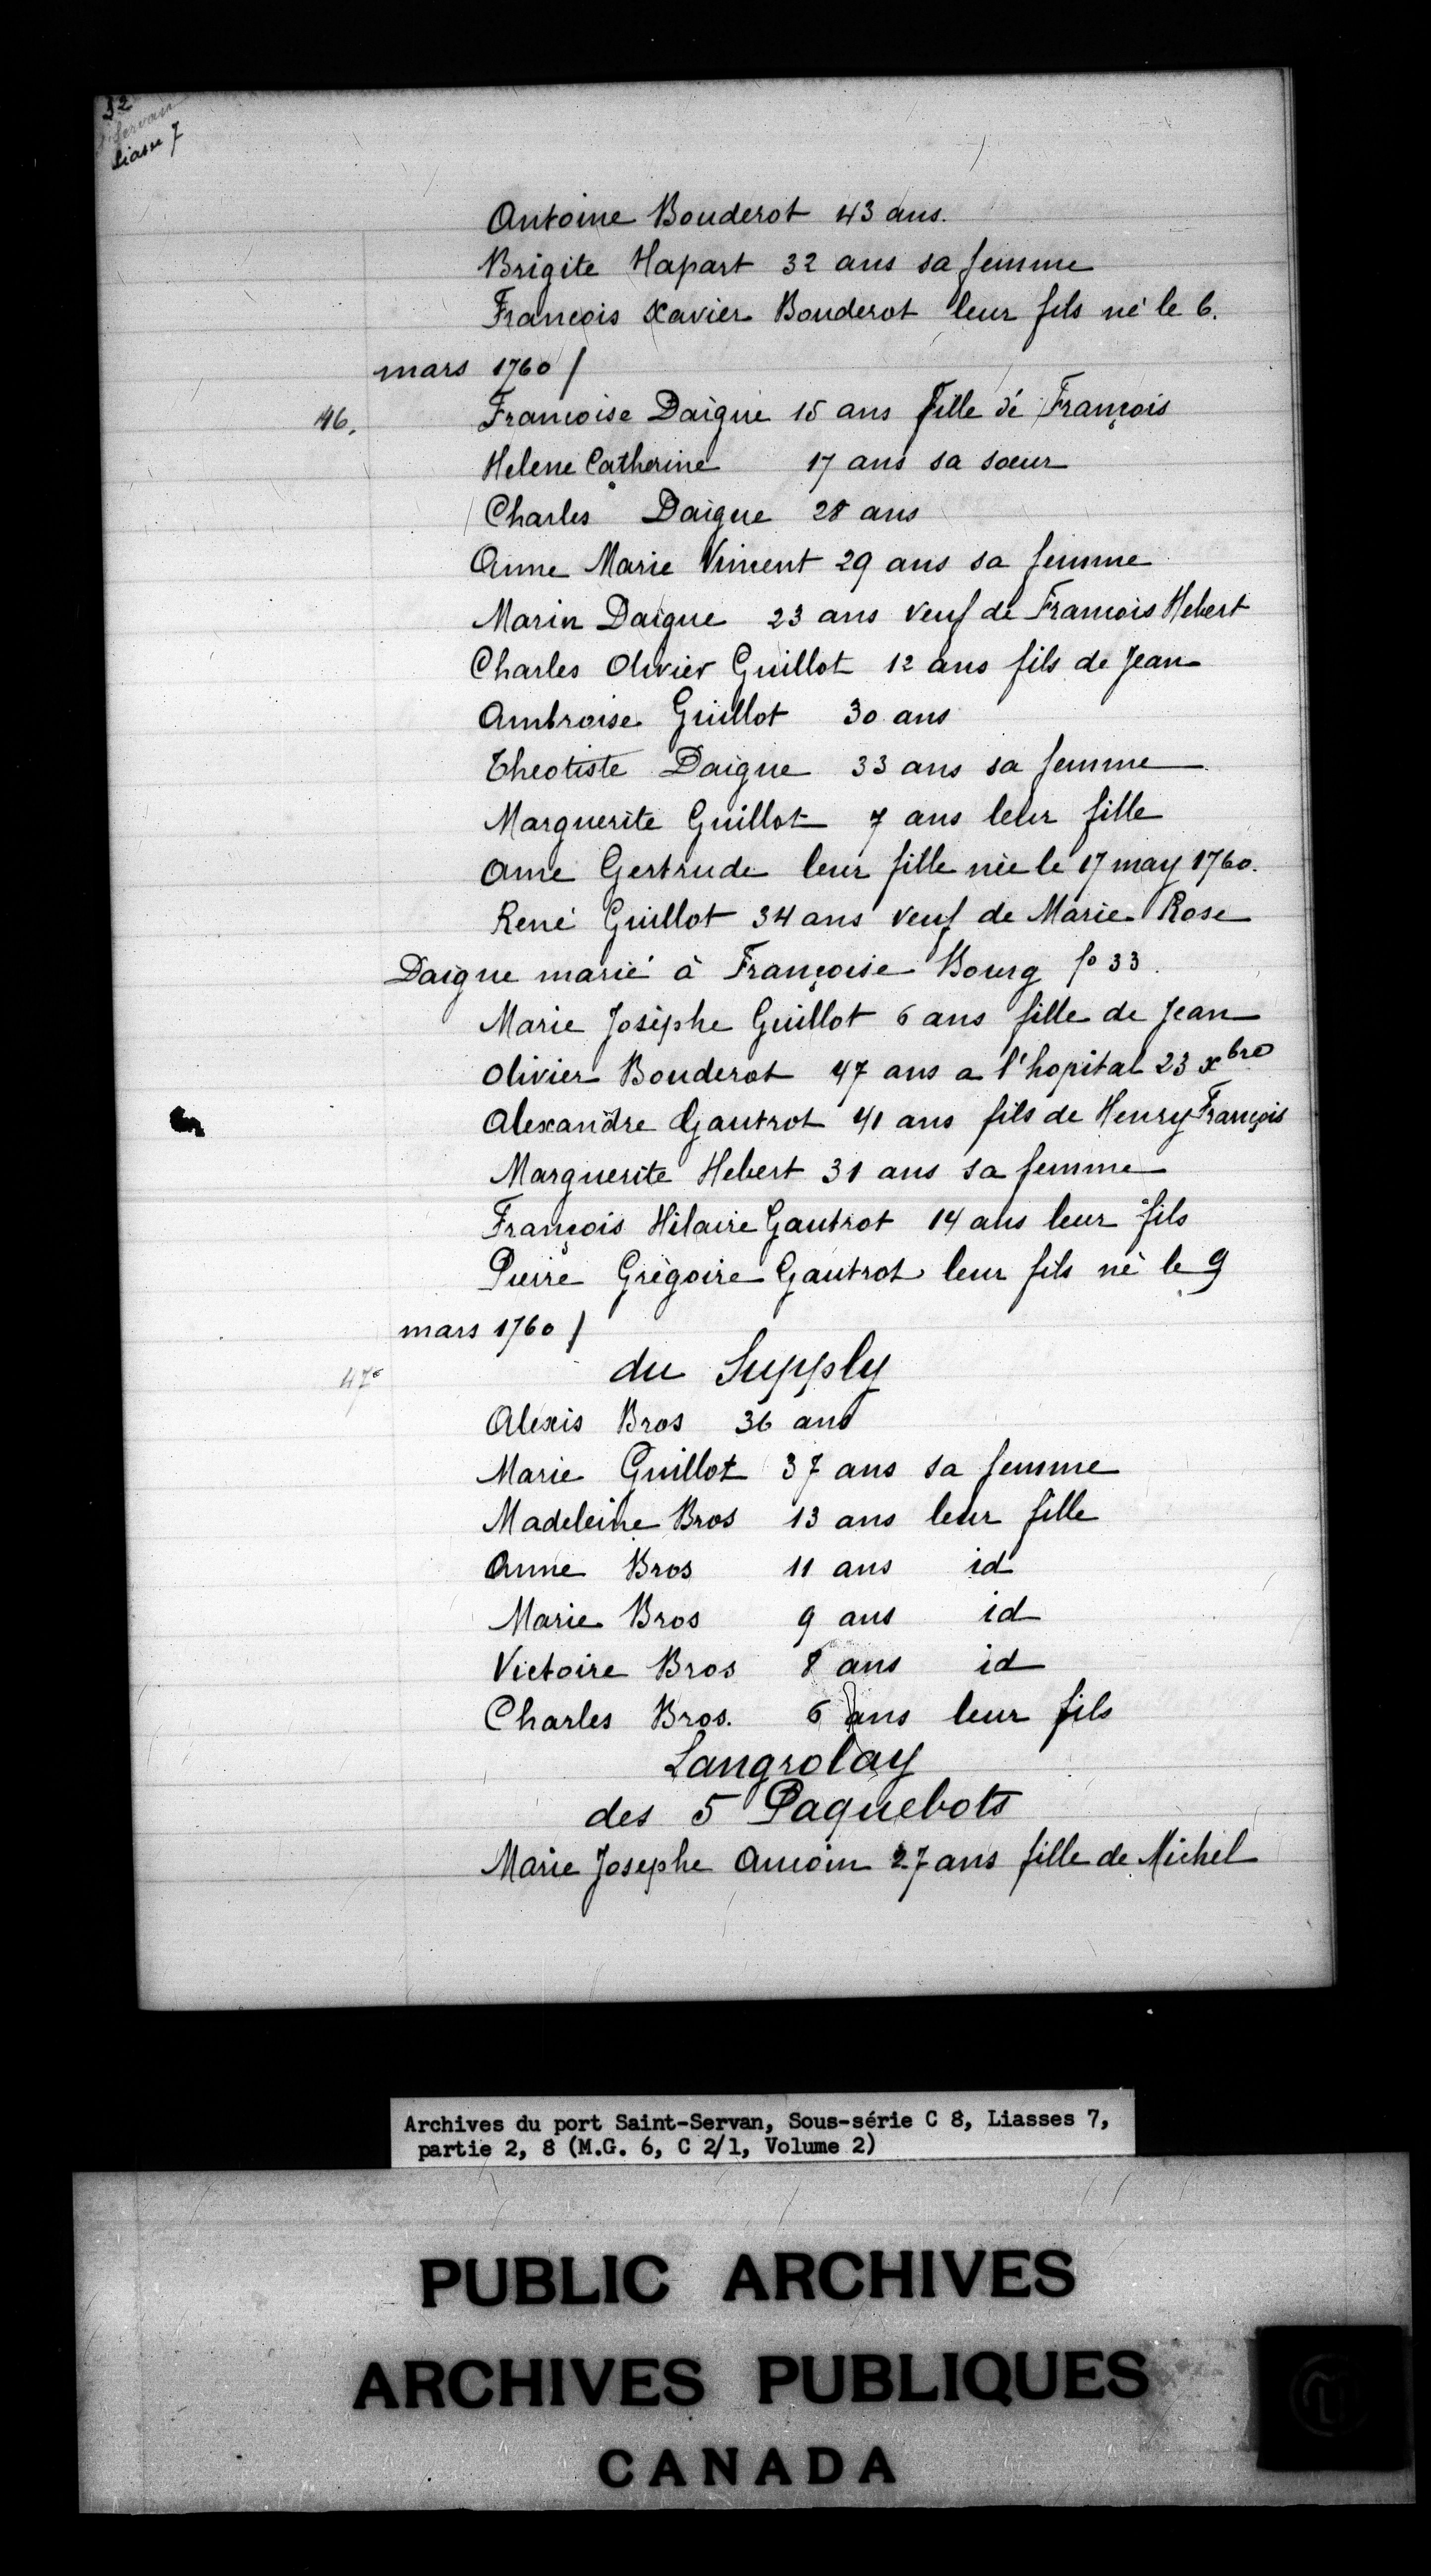 32
St Servan
Liasse 7
Antoine Bouderot 43 ans.
Brigite Hapart 32 ans sa femme
François Xavier Bouderot leur fils né le 6.
mars 1760 /
46. Francoise Daigue 15 ans fille de François
Helene Catherine 17 ans sa sœur
Charles Daigue 28 ans
Anne Marie Vincent 29 ans sa femme
Marin Daigue 23 ans veuf de Francois Hebert
Charles Olivier Guillot 12 ans fils de Jean
Ambroise Guillot 30 ans
Theotiste Daigue 33 ans sa femme
Marguerite Guillot 7 ans leur fille
Anne Gertrude leur fille née le 17 may 1760.
René Guillot 34 ans veuf de Marie Rose
Daigue marié à Françoise Bourg fo 33.
Marie Josephe Guillot 6 ans fille de Jean
Olivier Bouderot 47 ans a l'hopital 23 xbre
Alexandre Gautrot 41 ans fils de Henry François
Marguerite Hebert 31 ans sa femme
François Hilaire Gautrot 14 ans leur fils
Pierre Grégoire Gautrot leur fils né le 9
mars 1760 /
47e du Supply
Alexis Bros 36 ans
Marie Guillot 37 ans sa femme
Madeleine Bros 13 ans leur fille
Anne Bros 11 ans id
Marie Bros 9 ans id
Victoire Bros 8 ans id
Charles Bros. 6 ans leur fils
Langrolay
des 5 Paquebots
Marie Josephe Aucoin 27 ans fille de Michel
Archives du port Saint-Servan, Sous-série C 8, Liasses 7,
partie 2, 8 (M.G. 6, C 2/1, Volume 2)
PUBLIC ARCHIVES
ARCHIVES PUBLIQUES
CANADA